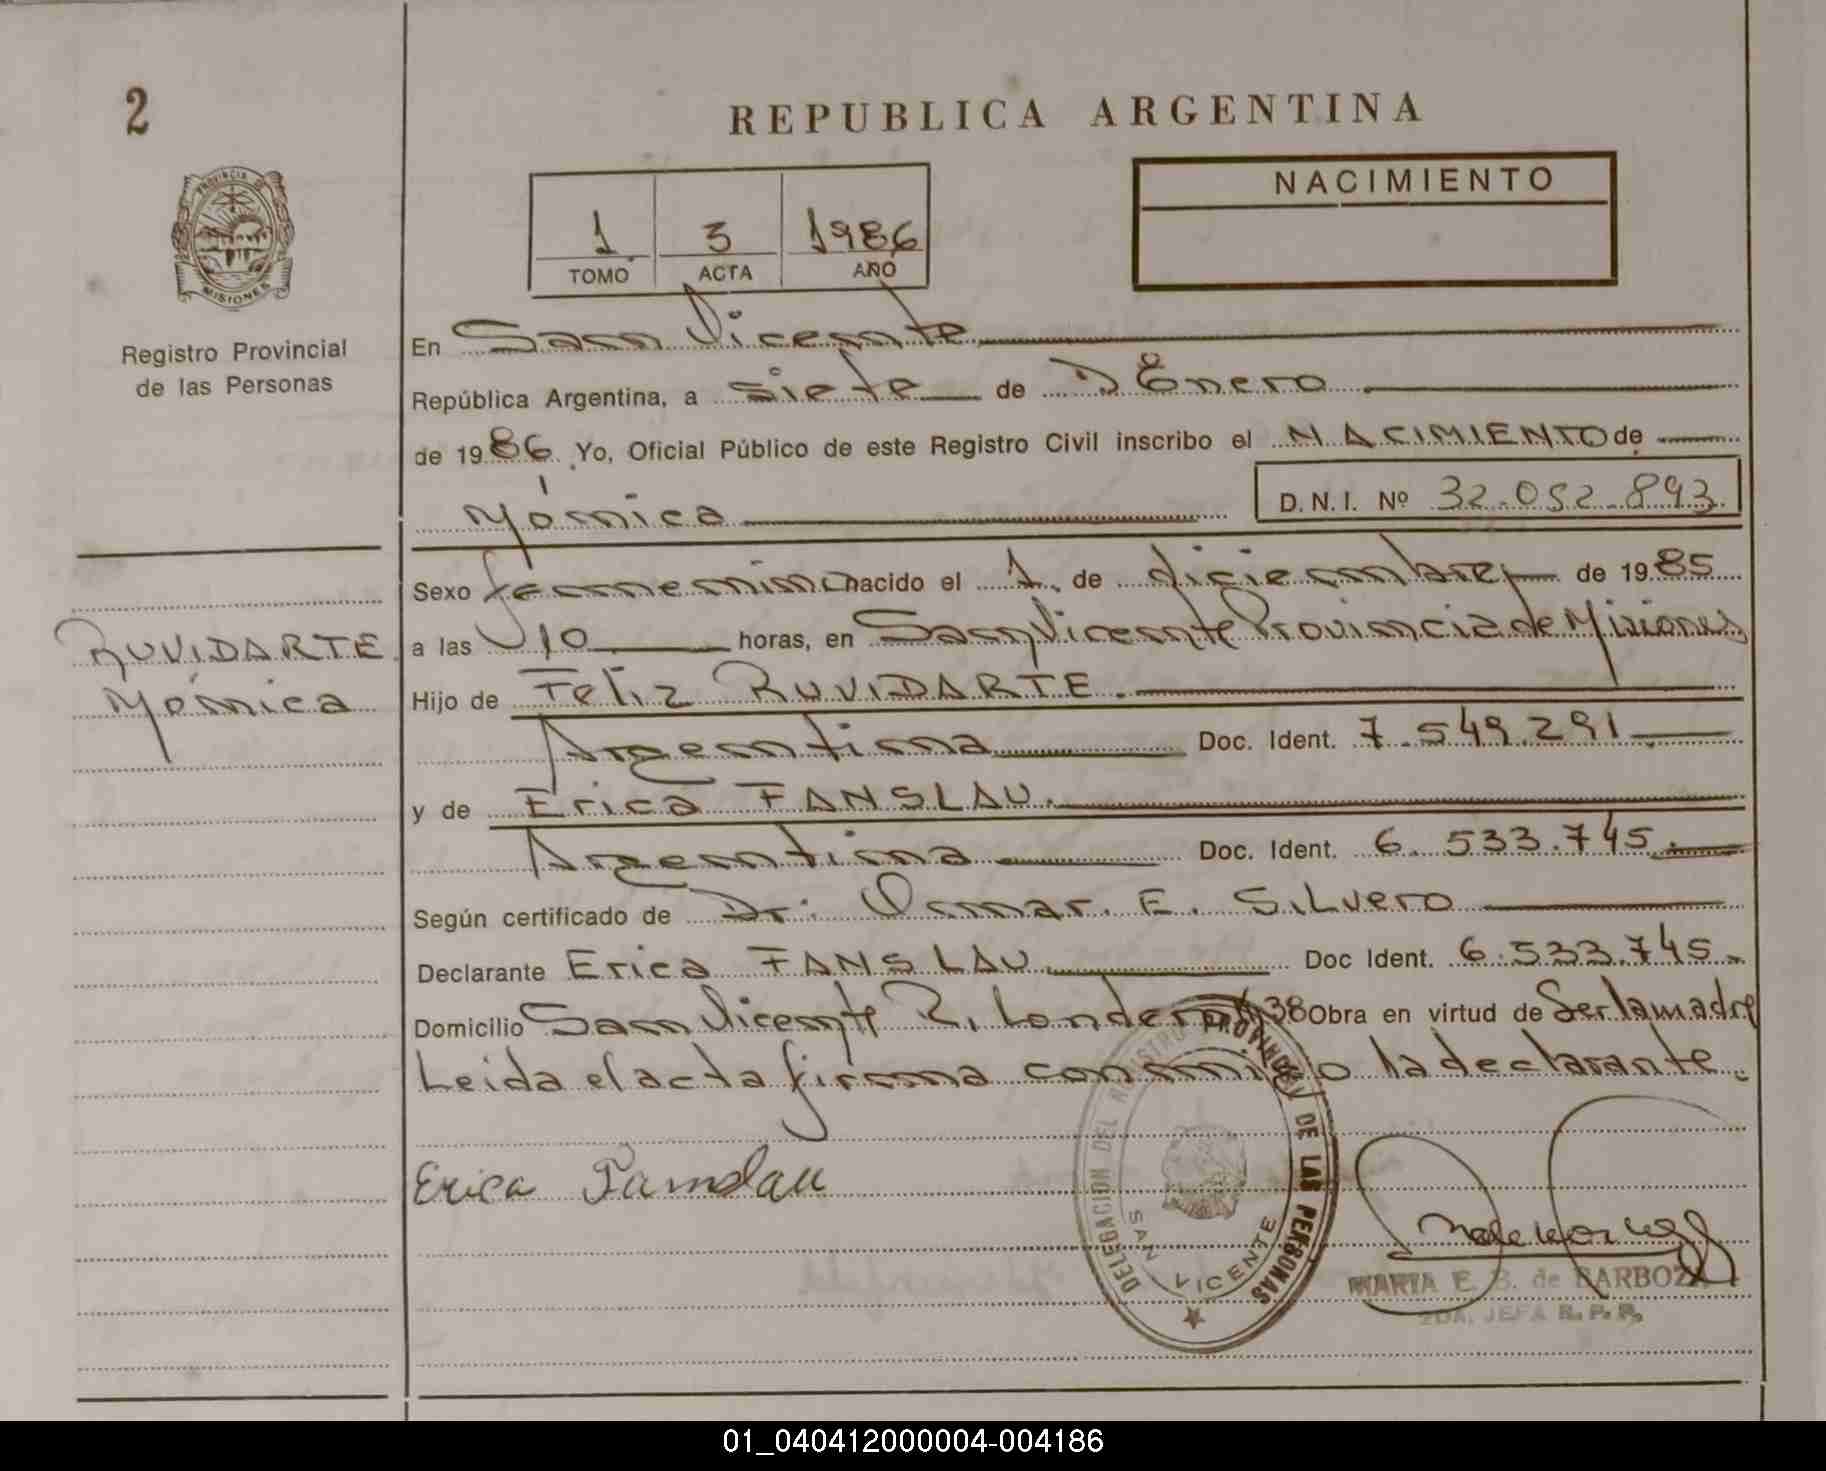 2
REPUBLICA ARGENTINA
PROVINCIA DE
MISIONES
1 3 1986
TOMO ACTA AÑO
NACIMIENTO
Registro Provincial
de las Personas
En San Vicente
República Argentina, a siete de Enero
de 1986 Yo, Oficial Público de este Registro Civil inscribo el NACIMIENTO de
Mónica D.N.I. Nº 32.052.893
Sexo femenino nacido el 1. de diciembre de 1985
RUVIDARTE
Mónica
a las 10 horas, en San Vicente Provincia de Misiones
Hijo de Feliz RUVIDARTE.
Argentina Doc. Ident. 7.549.291
y de Erica FANSLAU.
Argentina Doc. Ident. 6.533.745.
Según certificado de Dr. Osmar. E. Silvero
Declarante Erica FANSLAU Doc Ident. 6.533.745.
Domicilio San Vicente R. 38 Obra en virtud de Ser la madre
Leida el acta firma conmigo la declarante.
Erica Fanslau
DELEGACION DEL REGISTRO PROVINCIAL DE LAS PERSONAS
SAN VICENTE
MARIA E. B. de BARBOZA
2DA. JEFA R. P. P.
01_040412000004-004186